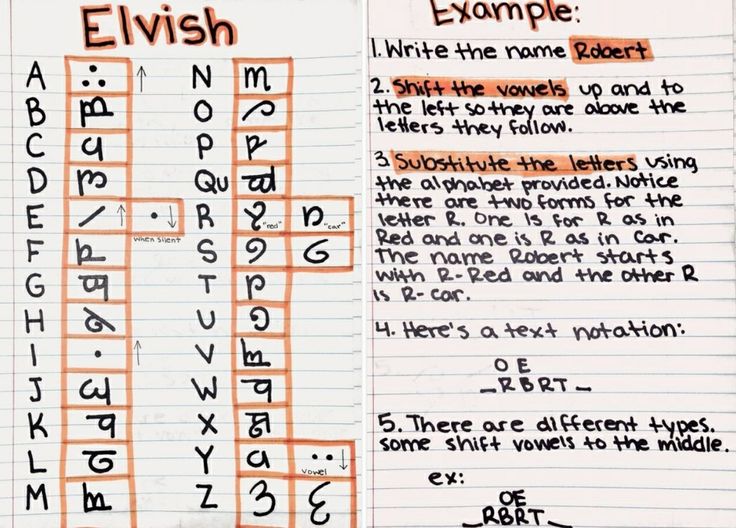 Elvish
A N
B O
C P
D Qu
E R "red" "car"
when silent
F S
G T
H U
I V
J W
K X
L Y vowel
M Z
Example:
1. Write the name Robert
2. Shift the vowels up and to
the left so they are above the
letters they follow.
3. Substitute the letters using
the alphabet provided. Notice
there are two forms for the
letter R. One is for R as in
Red and one is R as in Car.
The name Robert starts
with R-Red and the other R
is R-car.
4. Here's a text notation:
O E
_RBRT_
5. There are different types.
some shift vowels to the middle.
ex:
OE
_RBRT_